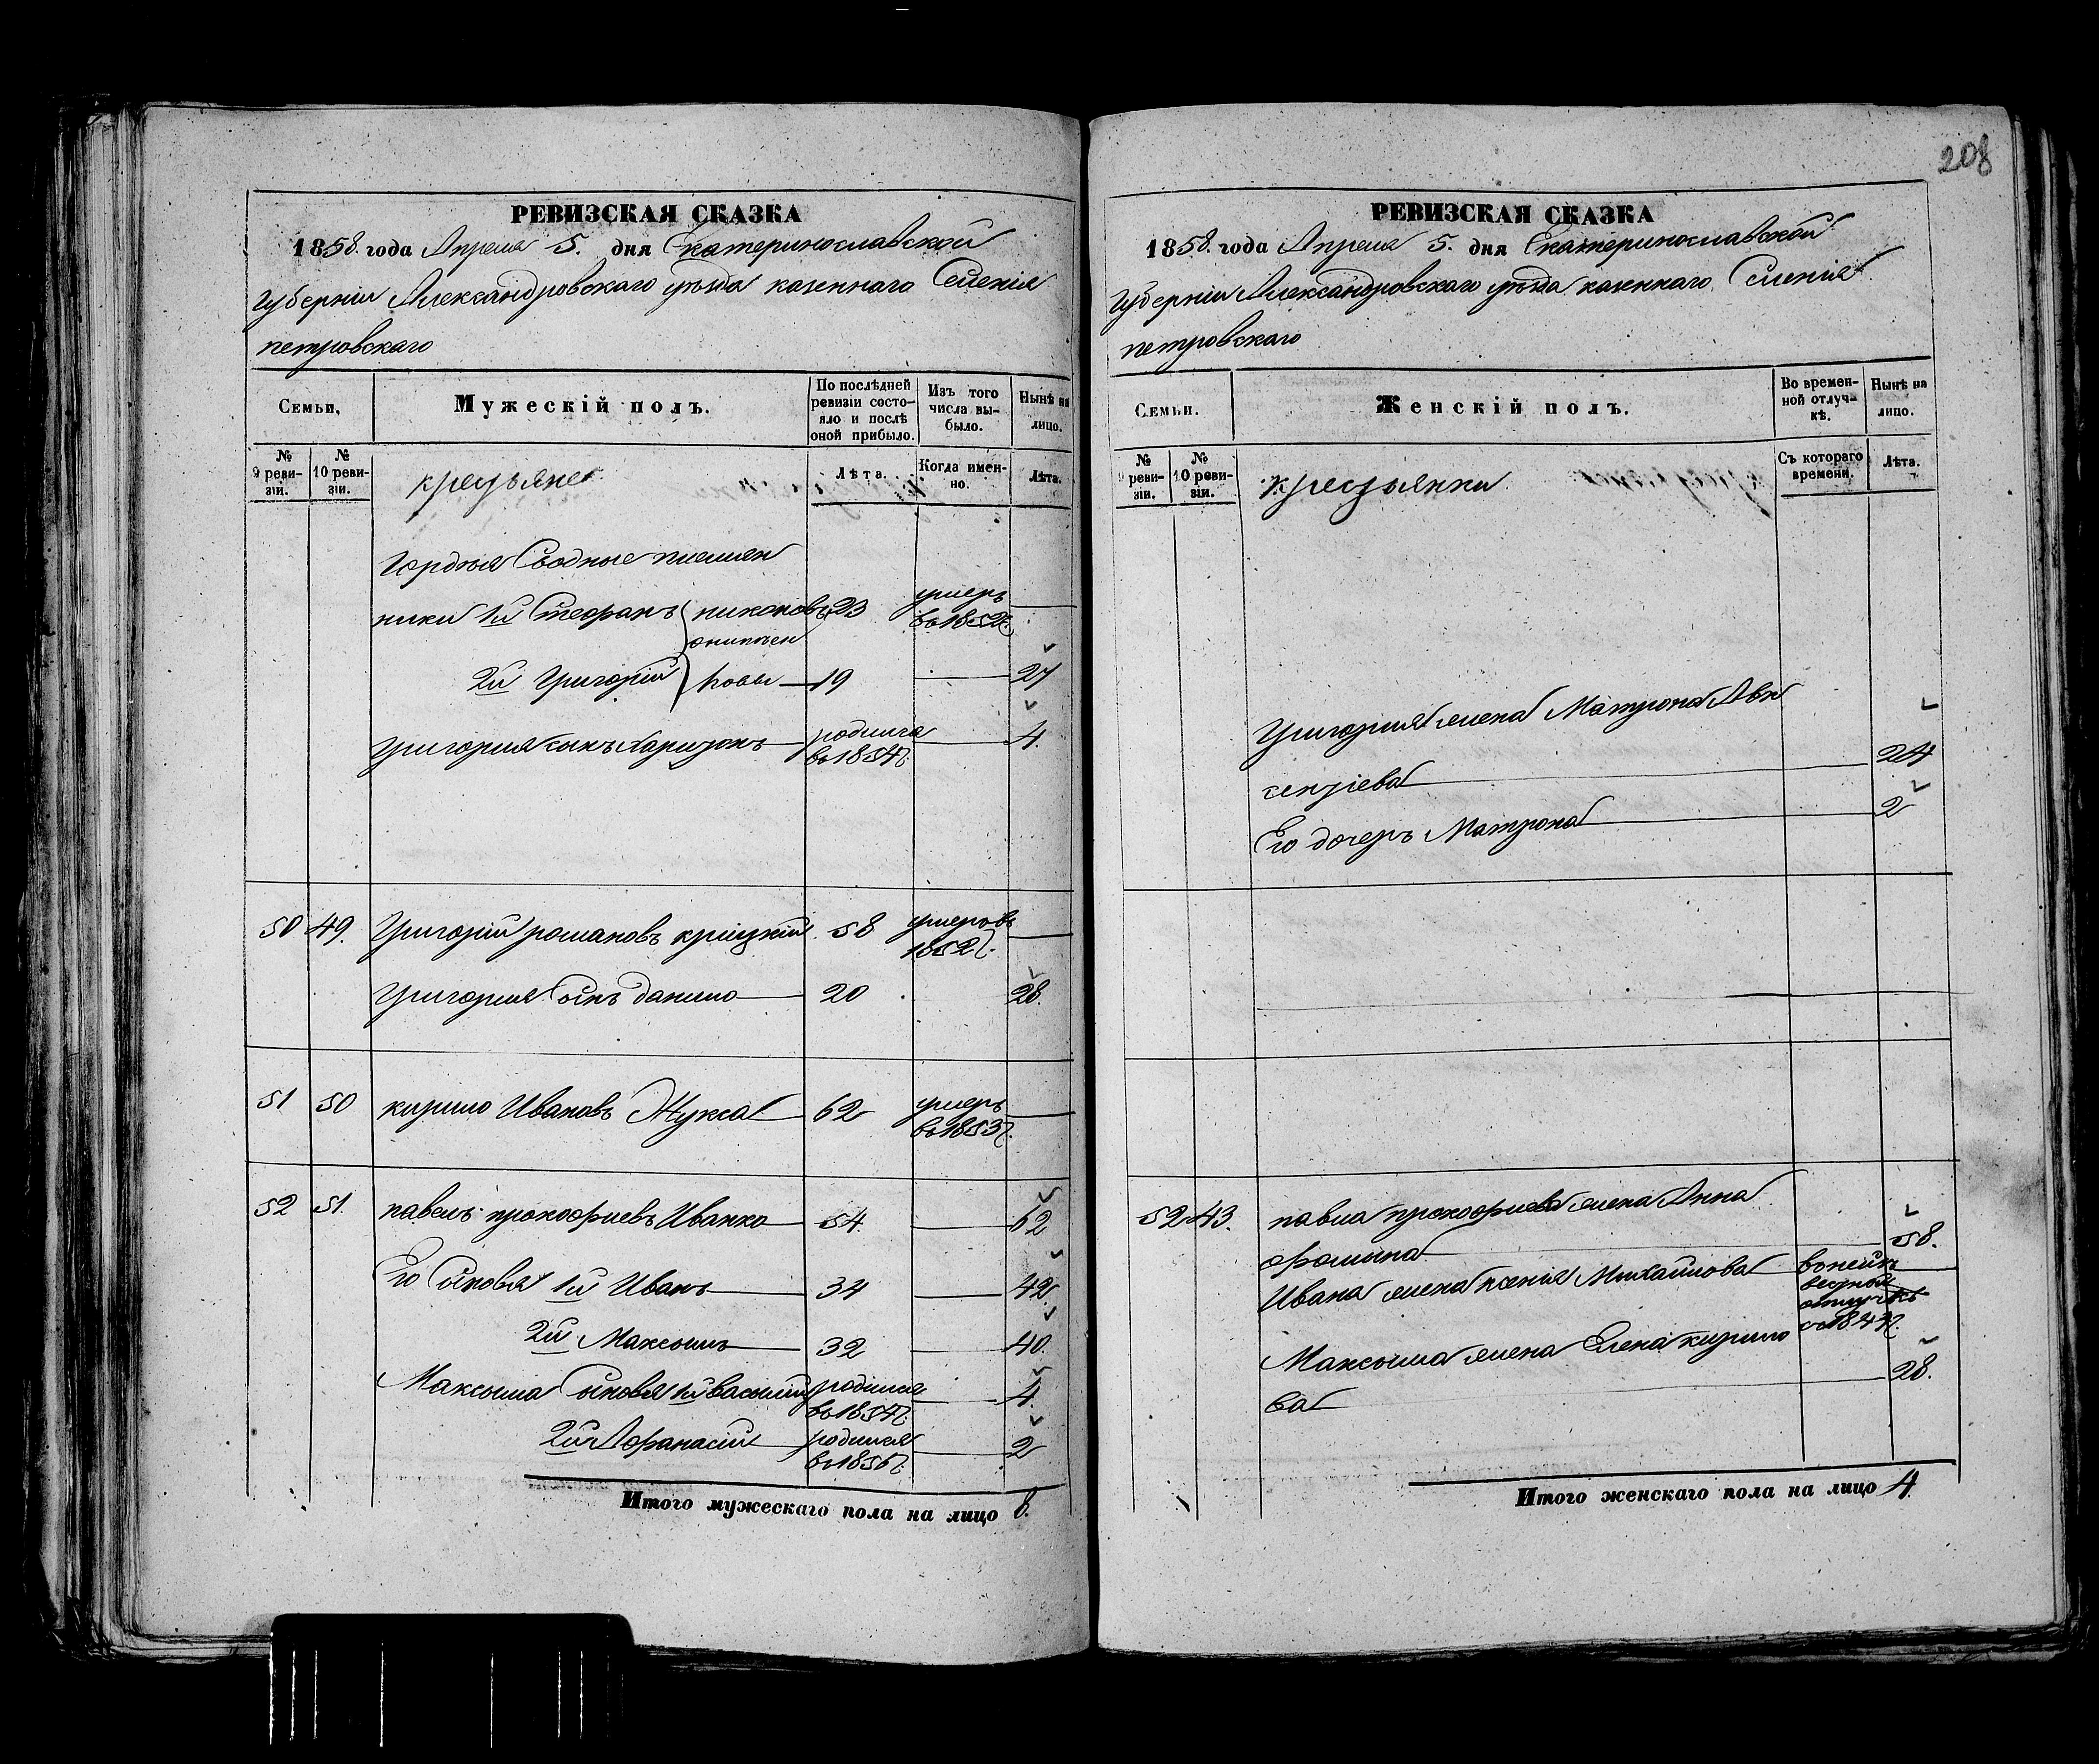 208
РЕВИЗСКАЯ СКАЗКА
1858. года Апреля 5. дня Екатеринославской
Губерніи Александровскаго уѣзда казеннаго Селенія
петровскаго
Семьи,
Мужескій полъ.
По послѣдней ревизіи состояло и послѣ оной прибыло.
Изъ того числа выбыло.
Нынѣ на лицо.
№ 9 ревизіи.
№ 10 ревизіи.
крестьяне
Лѣта.
Когда именно.
Лѣта.
Гордѣя Сводные племян
ники 1й Стефанъ никоновъ 23 умеръ во 1852г.
2й Григорій ковы 19 27
Григория сынъ Харитонъ родился во 1854г. 4.
50 49. Григорій романовъ крицкій 58 умеръ въ 1852г.
Григория Сынъ данило 20 28.
51 50 кирило Ивановъ Жукса 62 умеръ во 1853г.
52 51. павелъ прокофиевъ Иванко 54. 62
Его Сыновья 1й Иванъ 34 42
2й Максымъ 32 40.
Максыма Сыновья 1й василий родился во 1854г. 4.
2й Афанасий родился во 1856г. 2
Итого мужескаго пола на лицо 8.
РЕВИЗСКАЯ СКАЗКА
1858. года Апреля 5. дня Екатеринославской
Губерніи Александровскаго уѣзда казеннаго Селенія
петровскаго
Семьи.
Женскій полъ.
Во временной отлучкѣ.
Нынѣ на лицо.
№ 9 ревизіи.
№ 10 ревизіи.
крестьянки
Съ котораго времени.
Лѣта.
Григория жена Матрона Авк
сентіева 24
Его дочеръ Матрона 2
52 43. павла прокофиева жена Анна
фомына 58.
Ивана жена ксенія Михайлова
во неизвестной отлучкѣ со 1847г.
Максыма жена Елена кирило
ва 28.
Итого женскаго пола на лицо 4